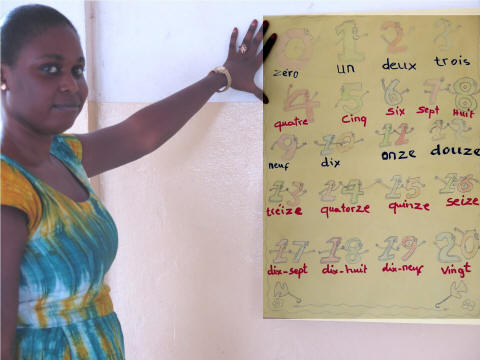 0 1 2 3
zéro un deux trois
4 5 6 7 8
quatre cinq six sept huit
9 10 11 12
neuf dix onze douze
13 14 15 16
treize quatorze quinze seize
17 18 19 20
dix-sept dix-huit dix-neuf vingt